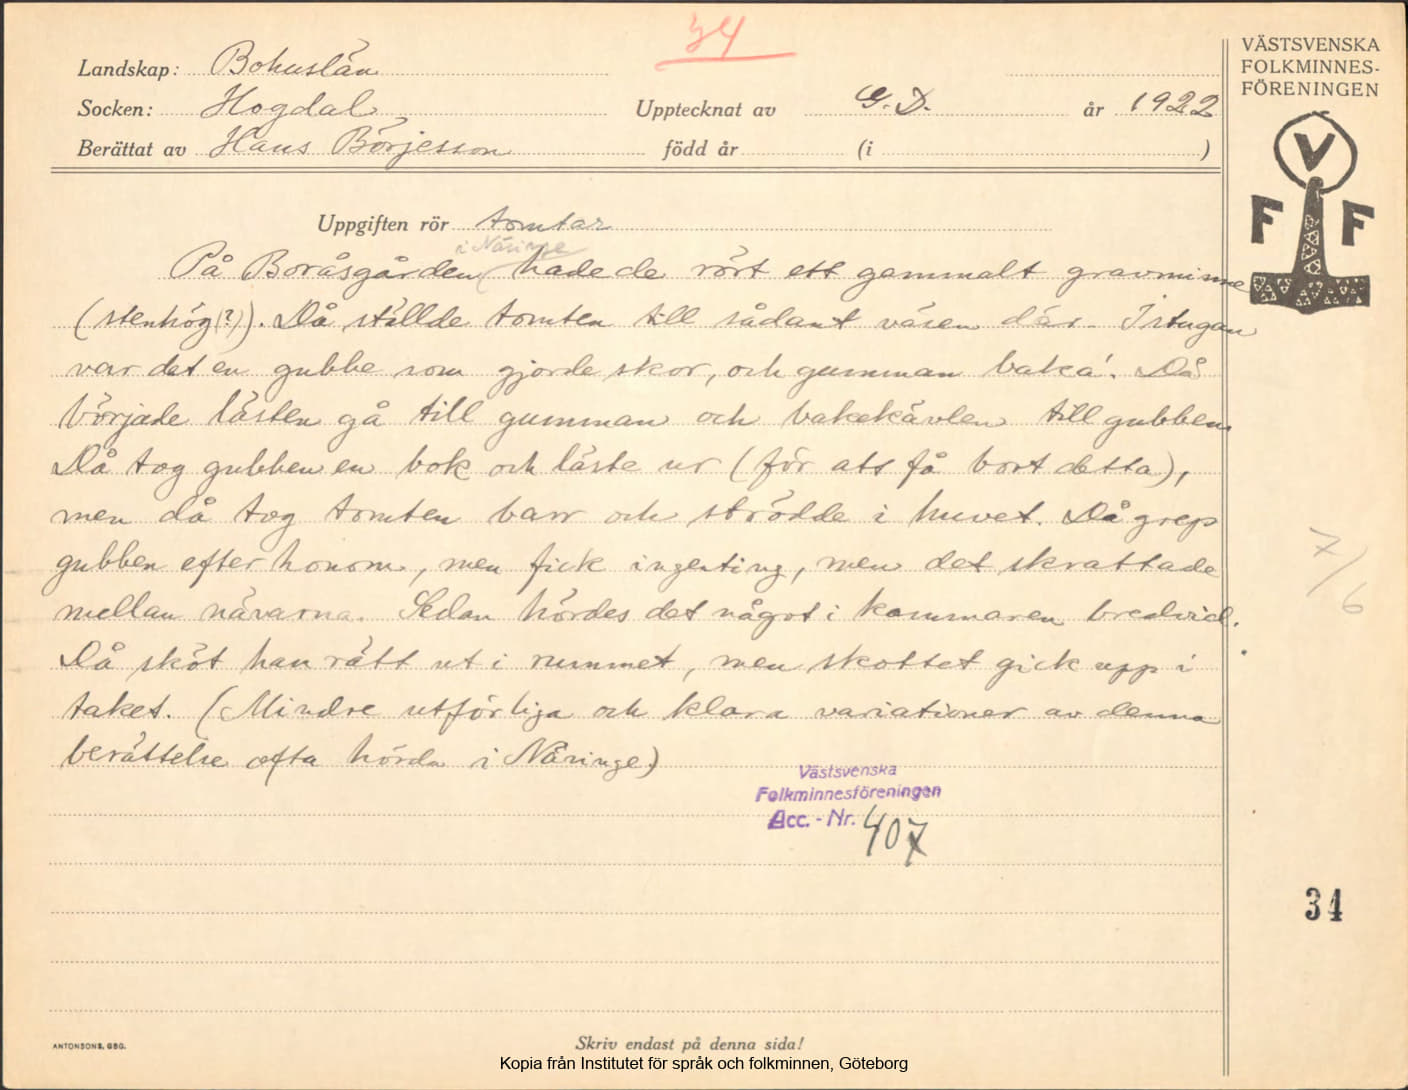 34
Landskap: Bohuslän
Socken: Hogdal
Upptecknat av G. D. år 1922
Berättat av Hans Börjesson född år (i )
VÄSTSVENSKA
FOLKMINNES-
FÖRENINGEN
V
F F
Uppgiften rör tomtar
i Näringe
På Boråsgården hade de rört ett gammalt gravminne
(stenhög(?)). Då ställde tomten till sådant väsen där. I stugan
var det en gubbe som gjorde skor, och gumman baka'. Då
började lästen gå till gumman och bakekävlen till gubben.
Då tog gubben en bok och läste ur (för att få bort detta),
men då tog tomten barr och strödde i huvet. Då grep
gubben efter honom, men fick ingenting, men det skrattade
mellan nävarna. Sedan hördes det något i kammaren bredvid.
Då sköt han rätt ut i rummet, men skottet gick upp i
taket. (Mindre utförliga och klara variationer av denna
berättelse ofta hörda i Näringe)
Västsvenska
Folkminnesföreningen
Acc. - Nr. 407
7/6
34
ANTONSONS, GBG.
Skriv endast på denna sida!
Kopia från Institutet för språk och folkminnen, Göteborg